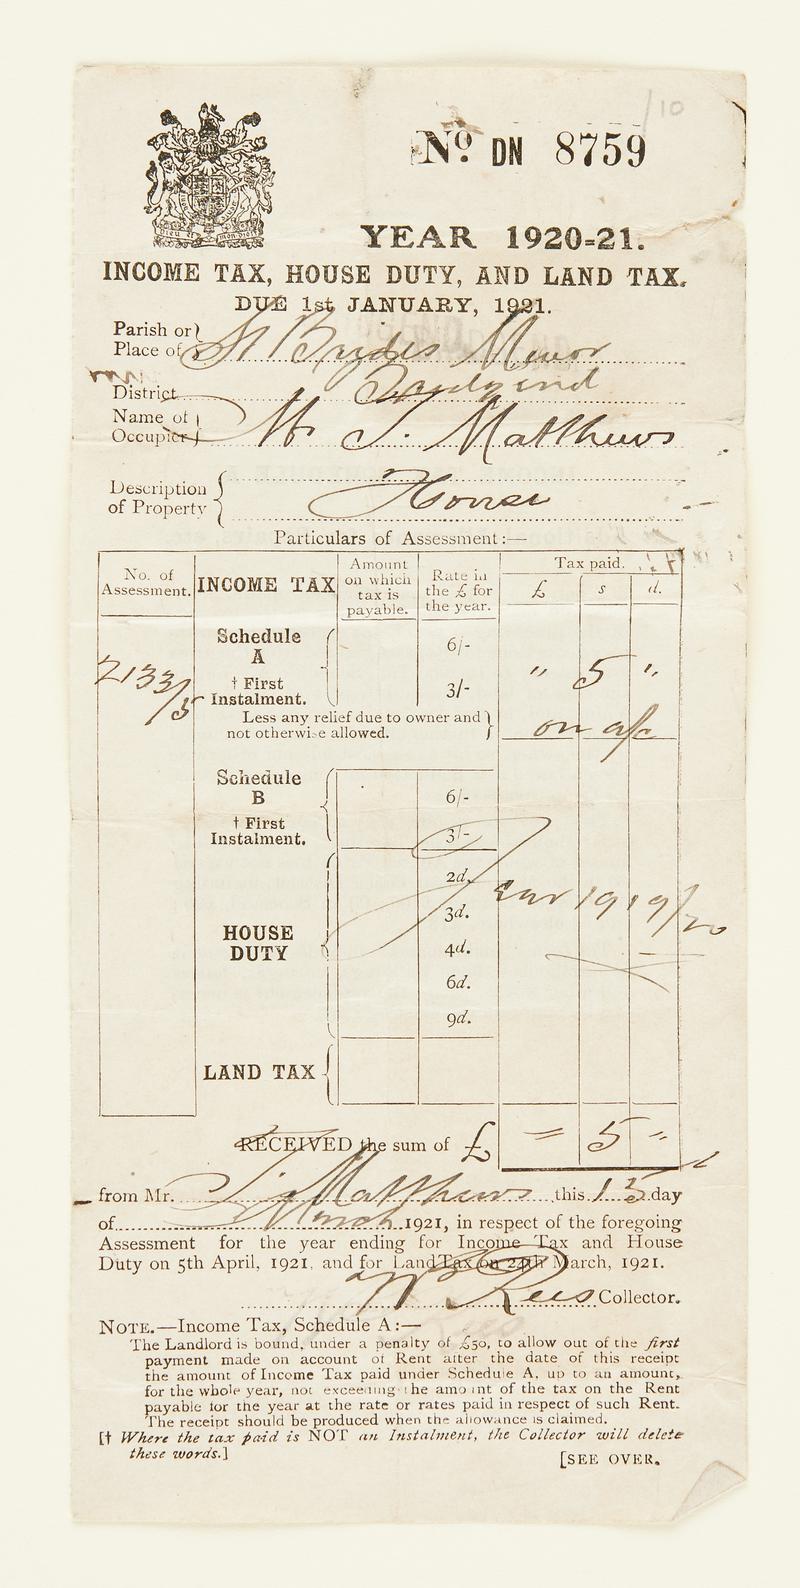 /10
Nº DN 8759
YEAR 1920=21.
INCOME TAX, HOUSE DUTY, AND LAND TAX.
DUE 1st JANUARY, 1921.
Parish or
Place of St Brides Minor
District
Name of
Occupier Mr J. Matthews
Description
of Property House
Particulars of Assessment:—
No. of Assessment. INCOME TAX Amount on which tax is payable. Rate in the £ for the year. Tax paid. £ s d.
2133/5
Schedule A 6/-
† First Instalment. 3/- " 5 "
Less any relief due to owner and
not otherwise allowed. on a/c
Schedule B 6/-
† First Instalment. 3/-
2d.
Year 1919/20
3d.
HOUSE DUTY 4d.
6d.
9d.
LAND TAX
RECEIVED the sum of £ = 5 "
from Mr. J. Matthews this 15 day
of March 1921, in respect of the foregoing
Assessment for the year ending for Income Tax and House
Duty on 5th April, 1921, and for Land Tax on 24th March, 1921.
W Rees Collector.
NOTE.—Income Tax, Schedule A:—
The Landlord is bound, under a penalty of £50, to allow out of the first
payment made on account of Rent after the date of this receipt
the amount of Income Tax paid under Schedule A, up to an amount,
for the whole year, not exceeding the amount of the tax on the Rent
payable for the year at the rate or rates paid in respect of such Rent.
The receipt should be produced when the allowance is claimed.
[† Where the tax paid is NOT an Instalment, the Collector will delete
these words.]
[SEE OVER.